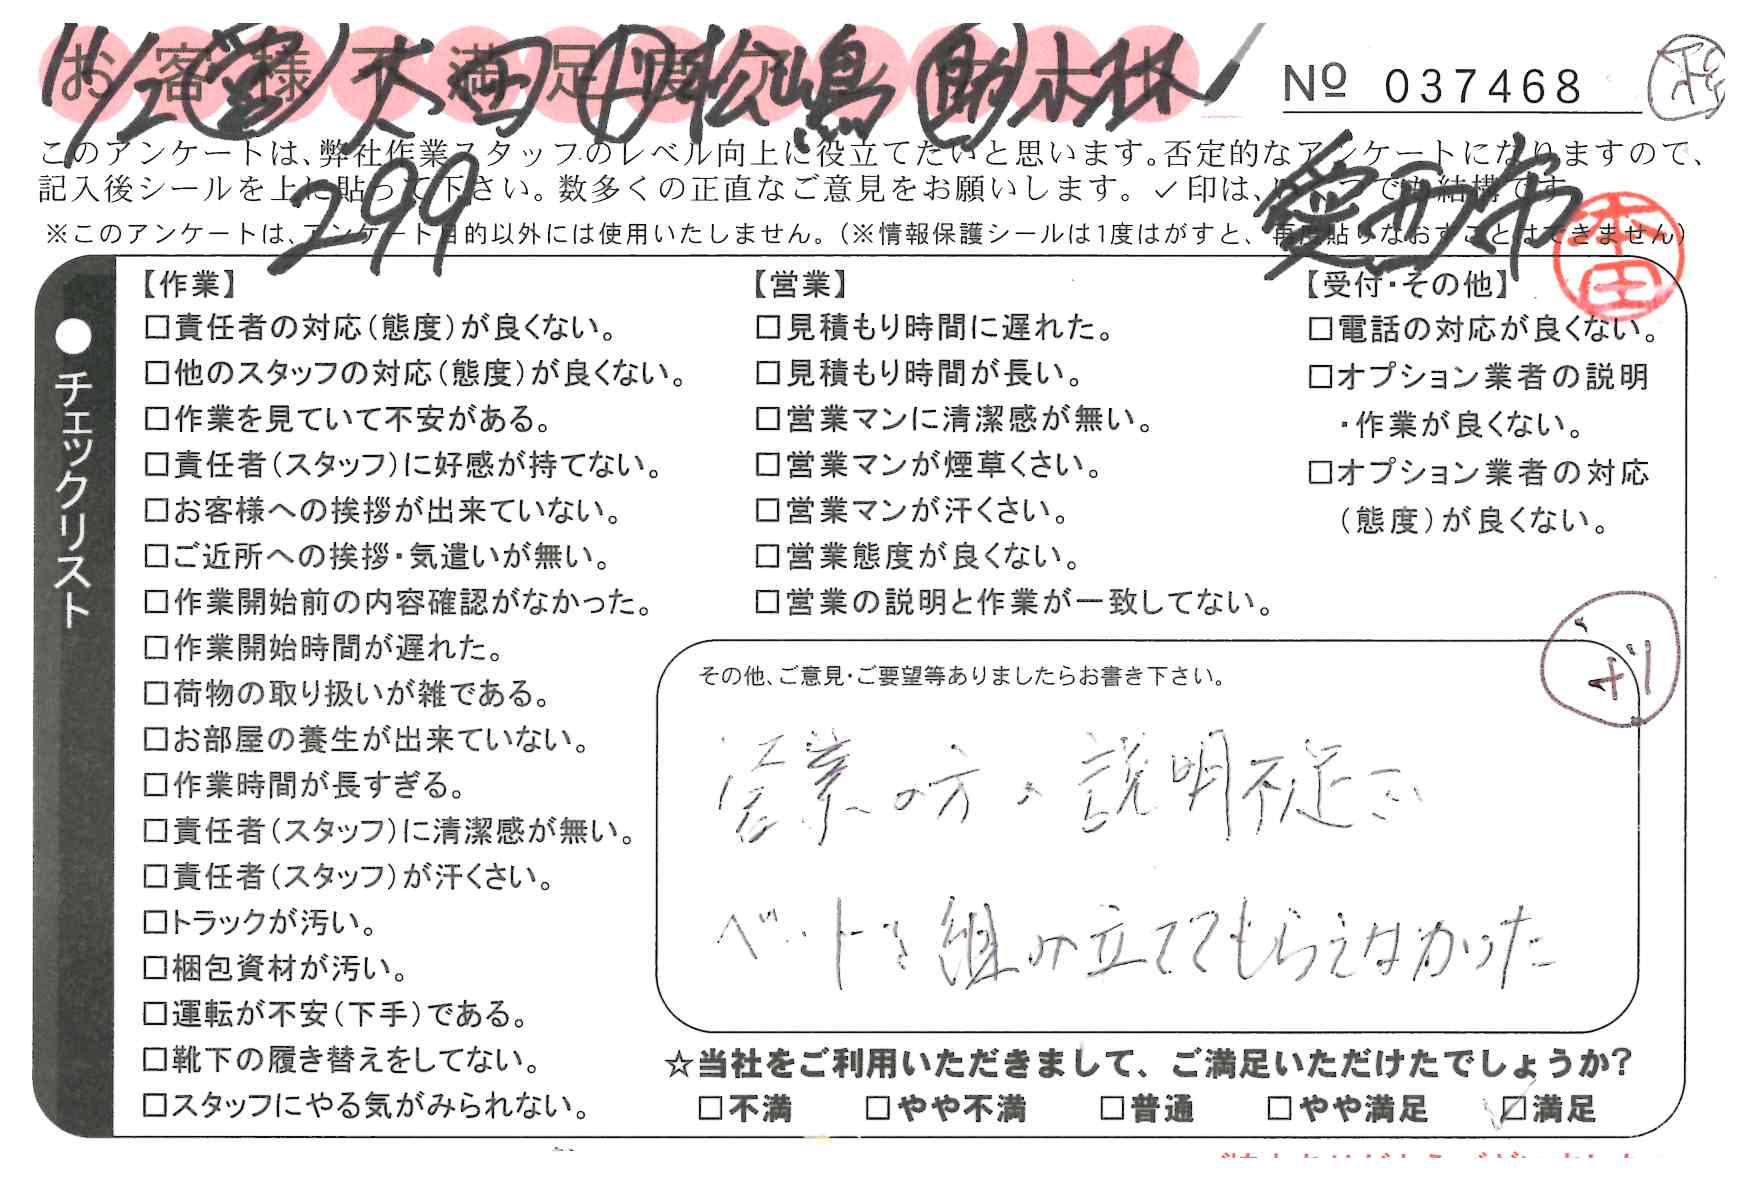 お客様不満足度アンケート
11/2 営 大西 ド 松嶋 助 小林
299
愛西市
Nº 037468
このアンケートは、弊社作業スタッフのレベル向上に役立てたいと思います。否定的なアンケートになりますので、
記入後シールを上に貼って下さい。数多くの正直なご意見をお願いします。✓印は、いくつでも結構です
※このアンケートは、アンケート目的以外には使用いたしません。(※情報保護シールは1度はがすと、再度貼りなおすことはできません)
本田
●チェックリスト
【作業】
□責任者の対応(態度)が良くない。
□他のスタッフの対応(態度)が良くない。
□作業を見ていて不安がある。
□責任者(スタッフ)に好感が持てない。
□お客様への挨拶が出来ていない。
□ご近所への挨拶・気遣いが無い。
□作業開始前の内容確認がなかった。
□作業開始時間が遅れた。
□荷物の取り扱いが雑である。
□お部屋の養生が出来ていない。
□作業時間が長すぎる。
□責任者(スタッフ)に清潔感が無い。
□責任者(スタッフ)が汗くさい。
□トラックが汚い。
□梱包資材が汚い。
□運転が不安(下手)である。
□靴下の履き替えをしてない。
□スタッフにやる気がみられない。
【営業】
□見積もり時間に遅れた。
□見積もり時間が長い。
□営業マンに清潔感が無い。
□営業マンが煙草くさい。
□営業マンが汗くさい。
□営業態度が良くない。
□営業の説明と作業が一致してない。
【受付・その他】
□電話の対応が良くない。
□オプション業者の説明
・作業が良くない。
□オプション業者の対応
(態度)が良くない。
その他、ご意見・ご要望等ありましたらお書き下さい。
営業の方の説明不足で
ベットを組み立ててもらえなかった
☆当社をご利用いただきまして、ご満足いただけたでしょうか?
□不満 □やや不満 □普通 □やや満足 ☑満足